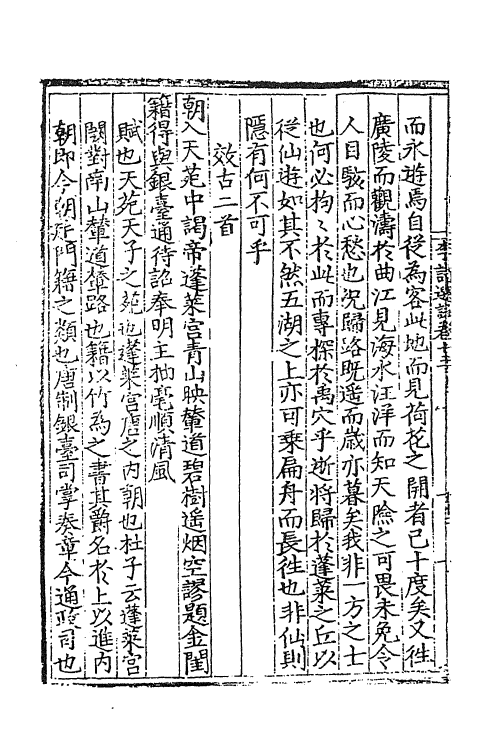 而永遊焉自從為客此地而見荷花之開者已十度矣又往
廣陵而觀濤於曲江見海水汪洋而知天險之可畏未免令
人目駭而心愁也況歸路既遥而歲亦暮矣我非一方之士
也何必拘〻於此而專探於禹穴乎逝將歸於蓬萊之丘以
從仙遊如其不然五湖之上亦可乘扁舟而長往也非仙則
隱有何不可乎
效古二首
朝入天苑中謁帝蓬萊宫青山映輦道碧樹遥烟空謬題金閨
籍得與銀臺通待詔奉明主抽毫順清風
賦也天苑天子之苑也蓬萊宫唐之内朝也杜子云蓬萊宫
闕對南山輦道輦路也籍以竹為之書其爵名於上以進内
朝即今朝所門籍之類也唐制銀臺司掌奏章今通政司也